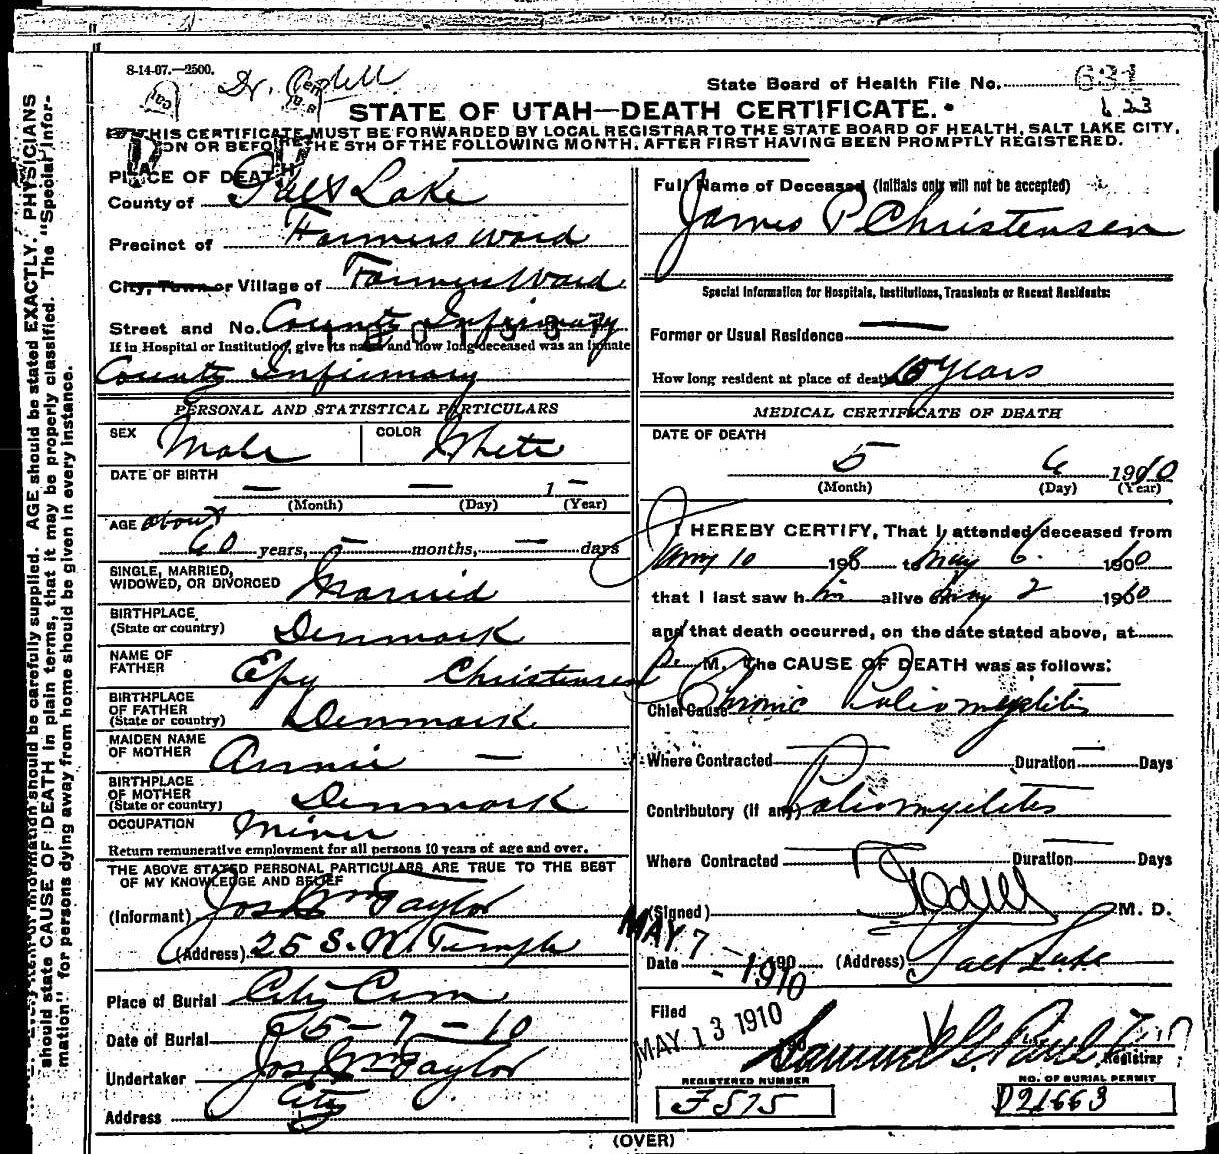 8-14-07.—2500.
Dr.
State Board of Health File No. 631
123
STATE OF UTAH—DEATH CERTIFICATE.
THIS CERTIFICATE MUST BE FORWARDED BY LOCAL REGISTRAR TO THE STATE BOARD OF HEALTH, SALT LAKE CITY,
ON OR BEFORE THE 5TH OF THE FOLLOWING MONTH, AFTER FIRST HAVING BEEN PROMPTLY REGISTERED.
PLACE OF DEATH
County of Salt Lake
Precinct of Farmers Ward
City, Town or Village of Farmers Ward
Street and No. County Infirmary
If in Hospital or Institution, give its name and how long deceased was an inmate
County Infirmary
PERSONAL AND STATISTICAL PARTICULARS
SEX Male COLOR White
DATE OF BIRTH — — 1 —
(Month) (Day) (Year)
AGE about
60 years, — months, — days
SINGLE, MARRIED,
WIDOWED, OR DIVORCED Married
BIRTHPLACE
(State or country) Denmark
NAME OF
FATHER Epy Christensen
BIRTHPLACE
OF FATHER
(State or country) Denmark
MAIDEN NAME
OF MOTHER Annie —
BIRTHPLACE
OF MOTHER
(State or country) Denmark
OCCUPATION Miner
Return remunerative employment for all persons 10 years of age and over.
THE ABOVE STATED PERSONAL PARTICULARS ARE TRUE TO THE BEST
OF MY KNOWLEDGE AND BELIEF
(Informant) Jos Wm Taylor
(Address) 25 S. W. Temple
Place of Burial City Cem
Date of Burial 5-7-10
Undertaker Jos Wm Taylor
Address City
Full Name of Deceased (Initials only will not be accepted)
James P Christensen
Special Information for Hospitals, Institutions, Transients or Recent Residents:
Former or Usual Residence —
How long resident at place of death 10 years
MEDICAL CERTIFICATE OF DEATH
DATE OF DEATH
5 6 1910
(Month) (Day) (Year)
I HEREBY CERTIFY, That I attended deceased from
Jany 10 1908 to May 6 1910
that I last saw him alive on May 2 1910
and that death occurred, on the date stated above, at
P. M. The CAUSE OF DEATH was as follows:
Chief Cause Chronic Poliomyelitis
Where Contracted — Duration — Days
Contributory (if any) Poliomyelites
Where Contracted — Duration — Days
(Signed) M. D.
Date MAY 7 - 1910 (Address) Salt Lake
Filed
MAY 13 1910
Samuel G. Paul
Registrar
REGISTERED NUMBER
F575
NO. OF BURIAL PERMIT
D21663
(OVER)
should be carefully supplied. AGE should be stated EXACTLY. PHYSICIANS
should state CAUSE OF DEATH in plain terms, that it may be properly classified. The "Special Infor-
mation" for persons dying away from home should be given in every instance.